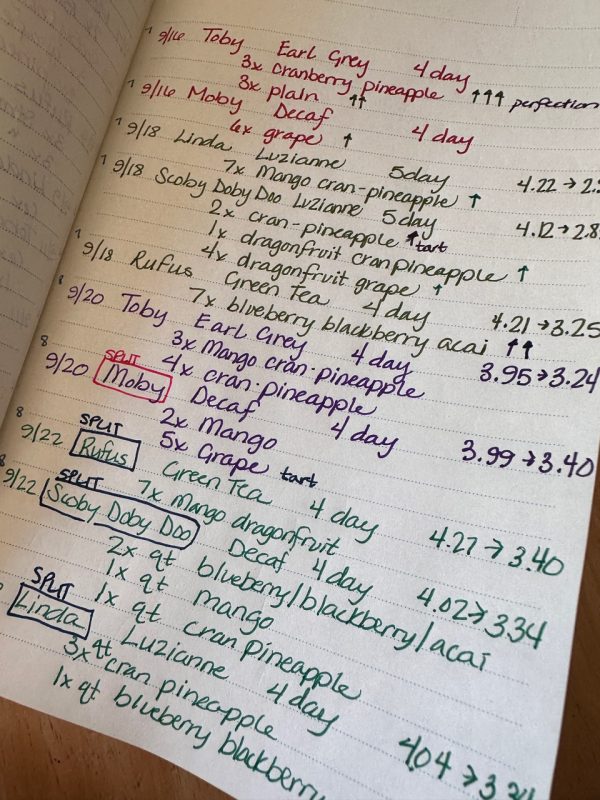 7 9/16 Toby Earl Grey 4 day
3x cranberry pineapple ↑↑↑ perfection
3x plain ↑↑
7 9/16 Moby Decaf 4 day
6x grape ↑
7 9/18 Linda Luzianne 5day 4.22 → 2.
7x Mango cran-pineapple ↑
7 9/18 Scoby Doby Doo Luzianne 5 day 4.12 → 2.8
2x cran-pineapple ↑ tart
1x dragonfruit cranpineapple ↑
4x dragonfruit grape ↑
7 9/18 Rufus Green Tea 4 day 4.21 → 3.25
7x blueberry blackberry acai ↑↑
8 9/20 Toby Earl Grey 4 day 3.95 → 3.24
3x Mango cran-pineapple
4x cran-pineapple
SPLIT
8 9/20 Moby Decaf 4 day 3.99 → 3.40
2x Mango
5x Grape tart
SPLIT
8 9/22 Rufus Green Tea 4 day 4.27 → 3.40
7x Mango dragonfruit
SPLIT
8 9/22 Scoby Doby Doo Decaf 4 day 4.02 → 3.34
2x qt blueberry/blackberry/acai
1x qt mango
1x qt cran pineapple
SPLIT
Linda Luzianne 4 day 4.04 → 3.2
3x qt cran pineapple
1x qt blueberry blackberry